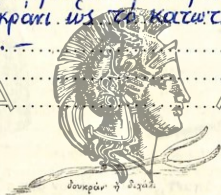 κράκι ὡς τό κατωτ
δουκράν ἤ διχάλι